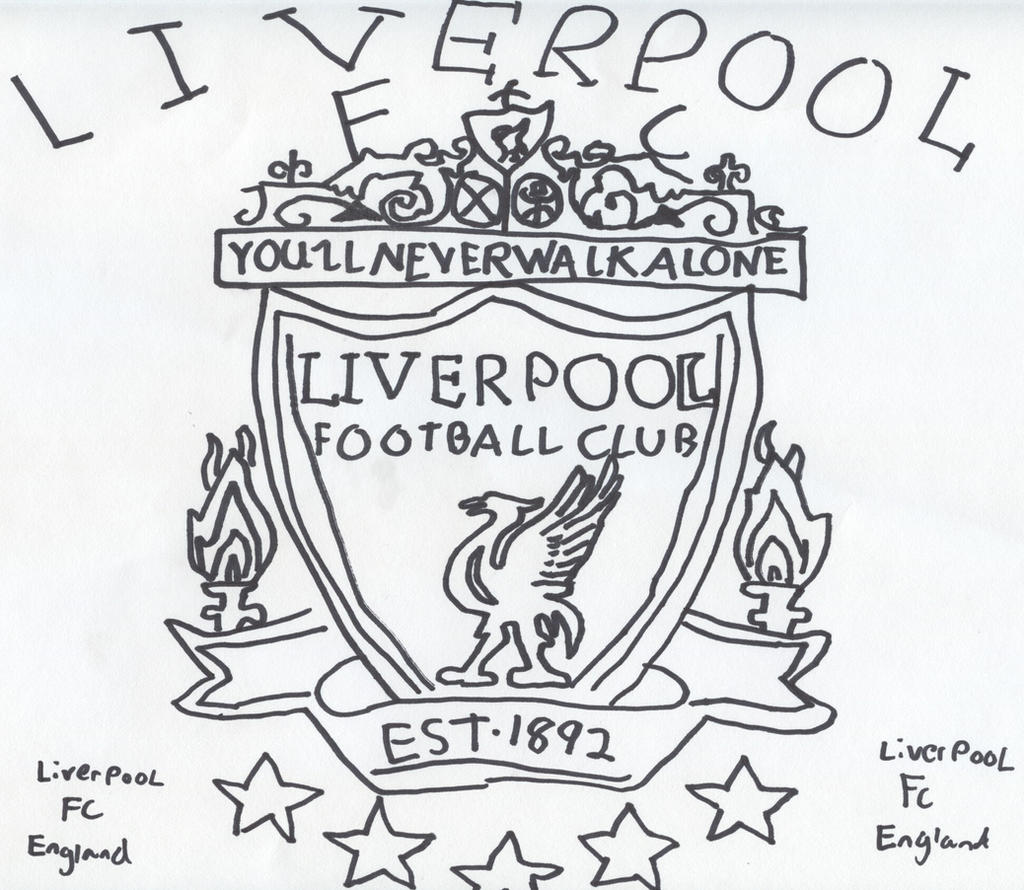 LIVERPOOL
F C
YOU'LL NEVER WALK ALONE
LIVERPOOL
FOOTBALL CLUB
EST·1892
LiverPooL
FC
England
LiverPooL
Fc
England